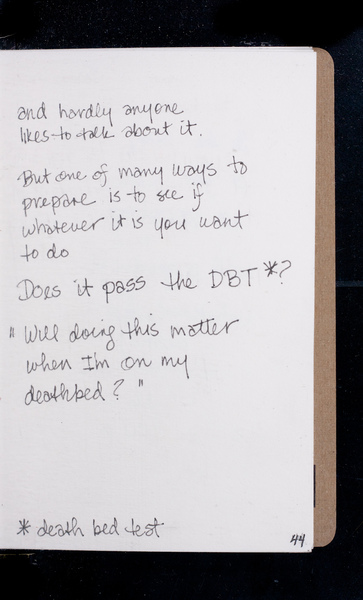 and hardly anyone
likes to talk about it.
But one of many ways to
prepare is to see if
whatever it is you want
to do
Does it pass the DBT *?
" Will doing this matter
when I'm on my
deathbed? "
* death bed test
44